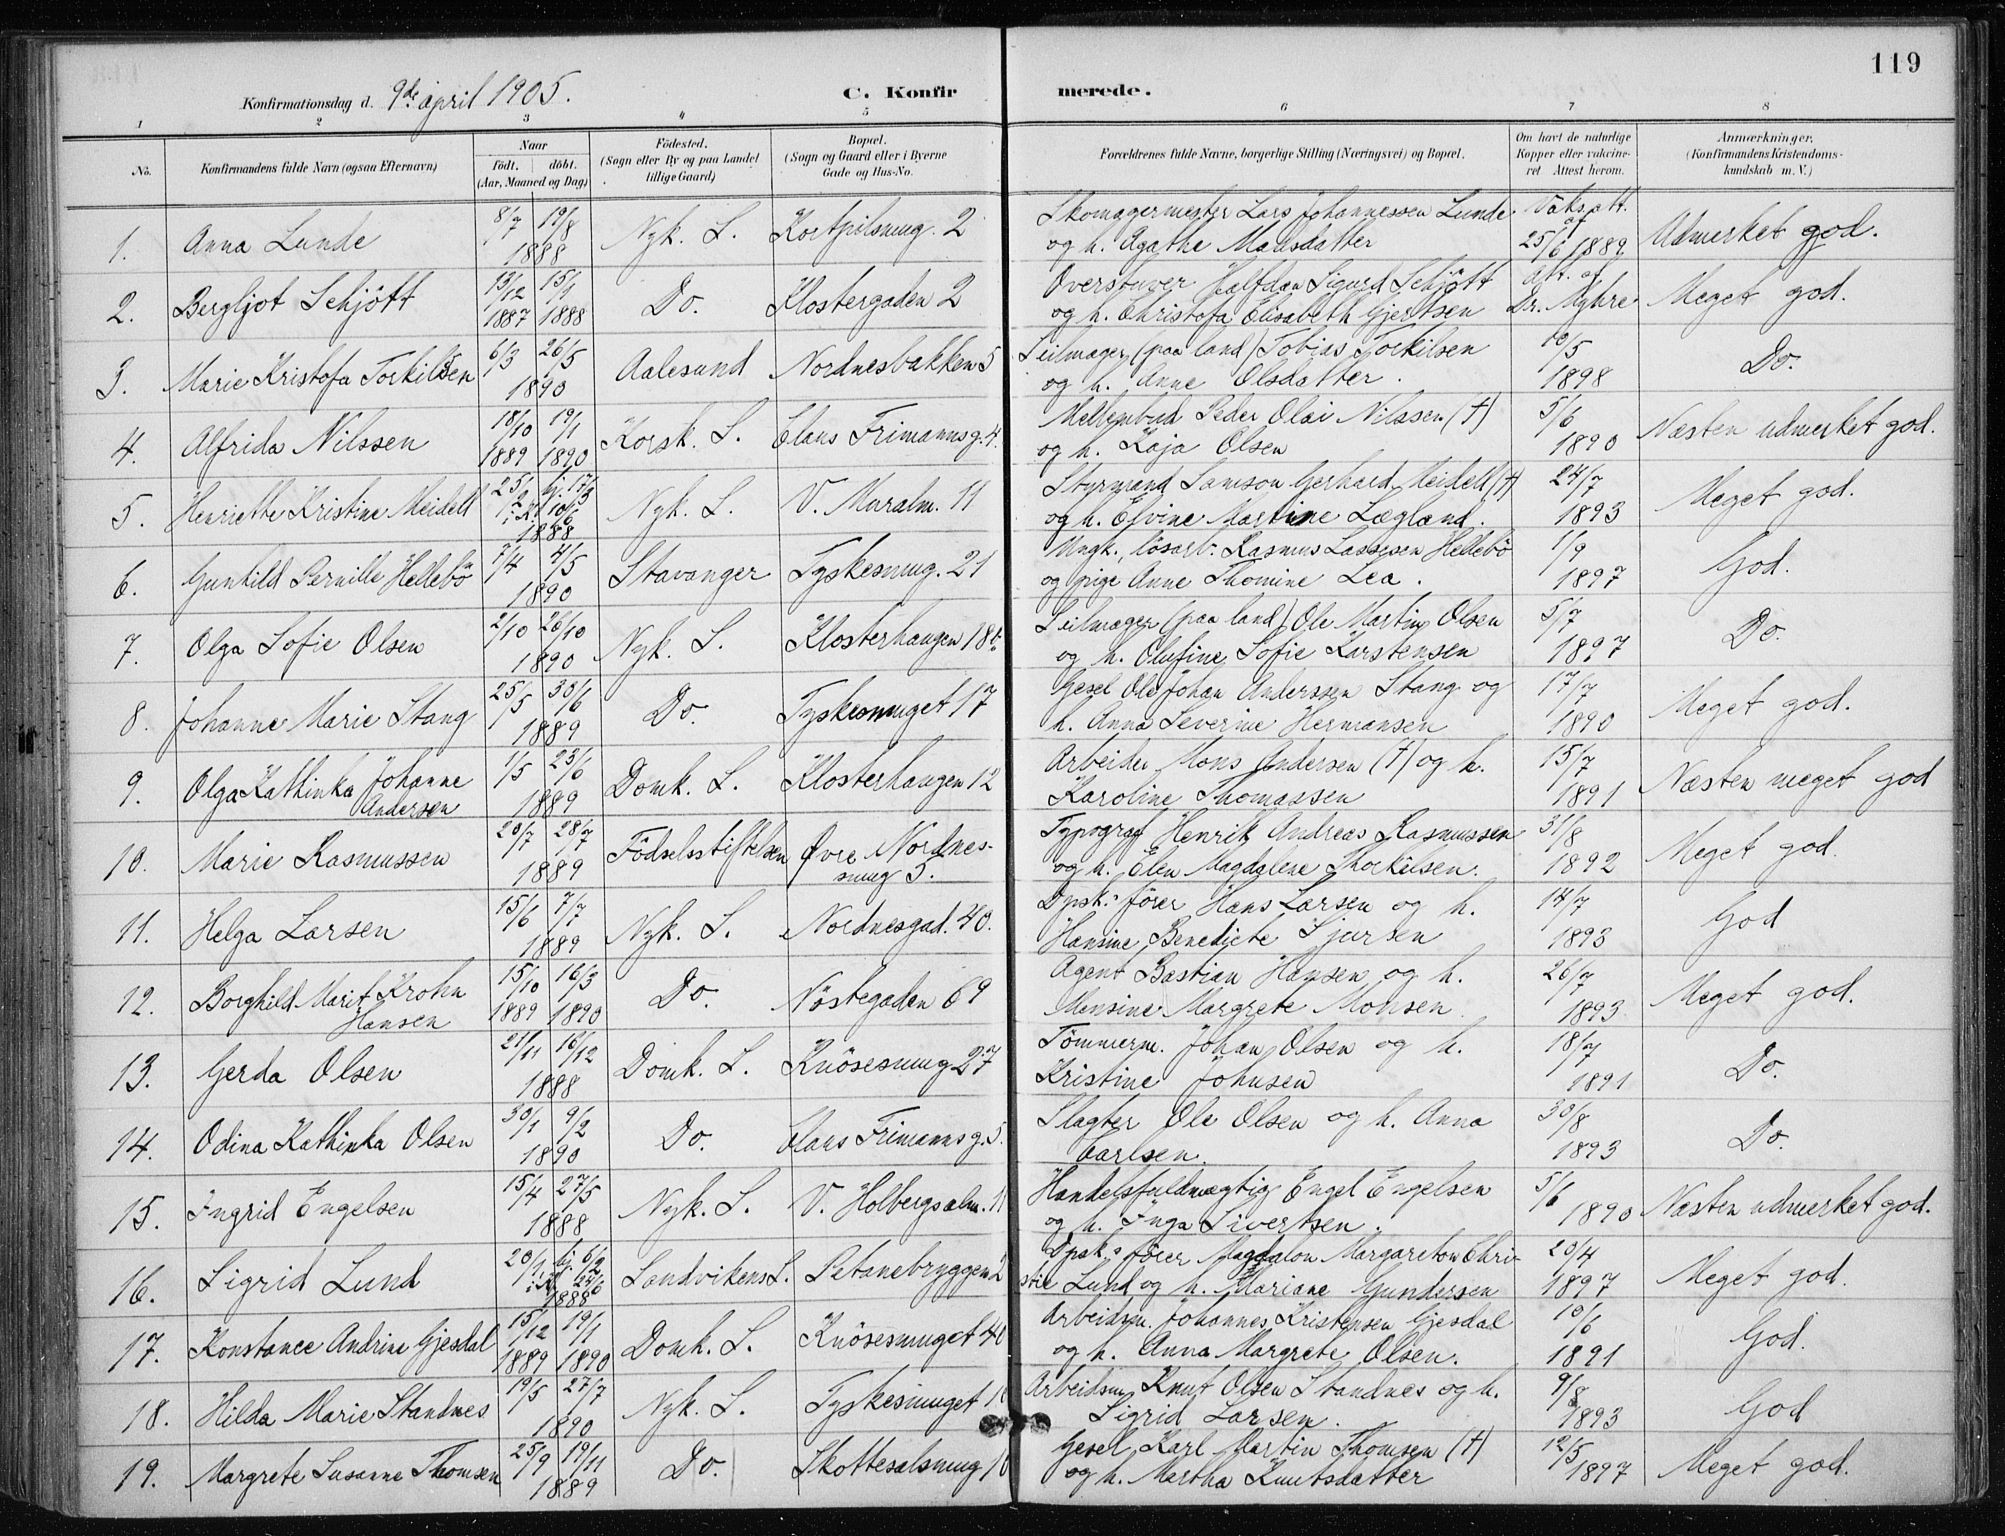 119
Konfirmationsdag d. 9de april 1905.
C. Konfirmerede.
1 2 3 4 5 6 7 8
No. Konfirmandens fulde Navn (ogsaa Efternavn) Naar födt. döbt. (Aar, Maaned og Dag) Födested. (Sogn eller By og paa Landet tillige Gaard) Bopæl. (Sogn og Gaard eller i Byerne Gade og Hus-No. Forældrenes fulde Navne, borgerlige Stilling (Næringsvei) og Bopæl. Om havt de naturlige Kopper eller vakcineret Attest herom. Anmærkninger, (Konfirmandens Kristendomskundskab m. V.)
1. Anna Lunde 8/7 19/8 1888 Nyk. S. Kortpilsmug. 2 Skomagermester Lars Johannessen Lunde og h. Agathe Monsdatter Vaks. att. af 25/6 1889 Udmerket god.
2. Bergljot Schjött 13/12 1887 15/1 1888 Do. Klostergaden 2 Halfdan Sigurd Schjött og h. Christofa Elisabeth Gjertsen Att. af Dr. Myhre Meget god.
3. Marie Kristofa Torkilsen 6/3 26/5 1890 Aalesund Nordnesbakken 5 Seilmager (paa land) Tobias Torkilsen og h. Anne Olsdatter. 10/5 1898 Do.
4. Alfrida Nilssen 18/10 1889 19/1 1890 Korsk. S. Claus Frimannsg. 4. Peder Olai Nilssen (†) og h. Kaja Olsen 5/6 1890 Næsten udmerket god.
5. Henriette Kristine Meidell 25/2 hj. 17/3 i K. 10/6 1888 Nyk. S. V. Muralm. 11 Styrmand Samson Gerhard Meidell (†) og h. Elvine Martine Lægland. 24/7 1893 Meget god.
6. Gunhild Pernille Hellebö 7/4 4/5 1890 Stavanger Tyskesmug. 21 Ungk., lösarb. Rasmus Lassesen Hellebö og pige Anne Thomine Lea. 1/9 1897 God.
7. Olga Sofie Olsen 2/10 26/10 1890 Nyk. S. Klosterhaugen 18b. Seilmager (paa land) Ole Martin Olsen og h. Olufine Sofie Karstensen 5/7 1897 Do.
8. Johanne Marie Stang 25/5 30/6 1889 Do. Tyskesmuget 17 Gesel Ole Johan Anderssen Stang og h. Anna Severine Hermansen 17/7 1890 Meget god.
9. Olga Kathinka Johanne Andersen 1/5 23/6 1889 Domk. S. Klosterhaugen 12 Arbeider Mons Andersen (†) og h. Karoline Thomassen 15/7 1891 Næsten meget god
10. Marie Rasmussen 20/7 28/7 1889 Födselsstiftelsen Øvre Nordnessmug 5. Typograf Henrik Andreas Rasmussen og h. Elen Magdalene Thorkilsen. 31/8 1892 Meget god.
11. Helga Larsen 15/6 7/7 1889 Nyk. S. Nordnesgad. 40. Dpsk.s förer Hans Larsen og h. Hansine Benedicte Sjursen 14/7 1893 God
12. Borghild Marit Krohn Hansen 15/10 1889 16/3 1890 Do. Nöstegaden 69 Agent Bastian Hansen og h. Monsine Margrete Monsen. 26/7 1893 Meget god.
13. Gerda Olsen 21/11 16/12 1888 Domk. S. Knösesmug 27 Tömmerm. Johan Olsen og h. Kristine Johnsen 18/7 1891 Do.
14. Odina Kathinka Olsen 30/1 9/2 1890 Do. Claus Frimannsg. 5. Slagter Ole Olsen og h. Anna Carlsen. 30/8 1893 Do.
15. Ingrid Engelsen 15/4 27/5 1888 Nyk. S. V. Holbergsalm. 11 Handelsfuldmægtig Engel Engelsen og h. Inga Sivertsen. 5/6 1890 Næsten udmerket god.
16. Sigrid Lund 20/1 hj. 6/2 1888 Sandvikens S. Petanebryggen 2 Dpsk.s förer Magdalon Margareton Christie Lund og h. Mariane Gundersen 20/4 1897 Meget god.
17. Konstance Andrine Gjesdal 15/12 1889 19/1 1890 Domk. S. Knösesmuget 40 Arbeidsm. Johannes Kristensen Gjesdal og h. Anna Margrete Olsen. 10/6 1891 God.
18. Hilda Marie Standnes 19/5 27/7 1890 Nyk. S. Tyskesmuget Arbeidsm. Knut Olsen Standnes og h. Sigrid Larsen. 9/8 1893 God
19. Margrete Susanne Thomsen 25/9 19/11 1889 Do. Skottesalsmug Gesel Karl Martin Thomsen (†) og h. Martha Knutsdatter 12/5 1897 Meget god.